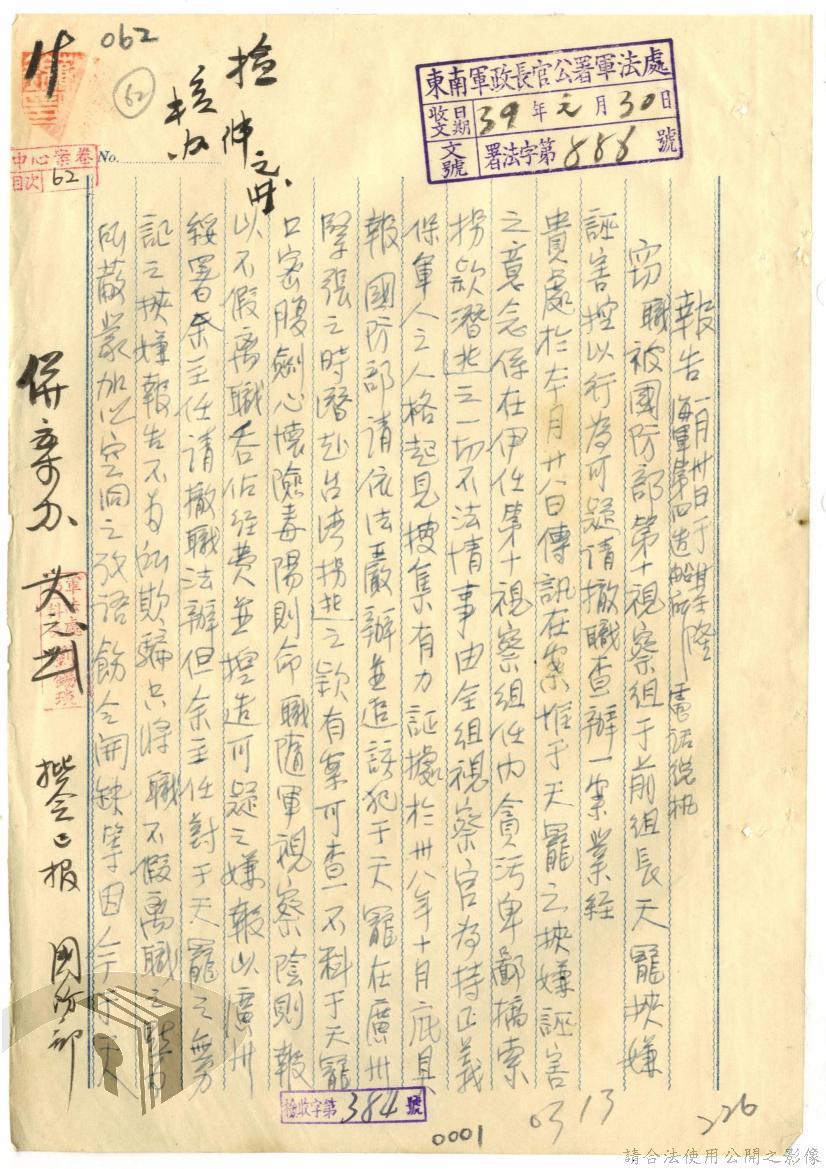 062
62
東南軍政長官公署軍法處
收文日期 39年元月30日
文號 署法字第 886 號
中心案卷
目次 62
No.
報告 一月卅日于基隆
海軍第四造船所 電話總机
窃職被國防部第十視察組于前組長天寵挾嫌
誣害控以行為可疑請撤職查辦一案業經
貴處於本月廿八日傳訊在案惟于天寵之挾嫌誣害
之意念係在伊任第十視察組任內貪污卑鄙摘索
拐款潛逃之一切不法情事由全組視察官為持正義
保軍人之人格起見搜集有力証據於卅八年十月底具
報國防部請依法嚴辦並追該犯于天寵在廣州
緊張之時潛赴台湾拐逃之款有案可查不料于天寵
口密腹劍心懷險毒陽則命職隨軍視察陰則報
以不假离職吞佔經費並捏造可疑之嫌報以廣州
綏署余主任請撤職法辦但余主任對于天寵之
記之挾嫌報告不為所欺騙只將職不假离職之
所蔽蒙加以空洞之攷語飭令開缺學因余于天
併案办
擬令呈报 國防部
檢收字第 384 號
0001
0313
226
請合法使用公開之影像